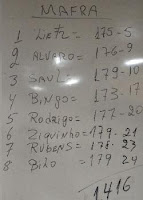 MAFRA
1 Lietz= 175-5
2 ALVARO= 176-9
3 SAUL= 179-10
4 Bingo= 173-17
5 Rodrigo= 177-20
6 Ziquinho=179-21
7 RUBENS= 178-23
8 Dito= 179 24
1416